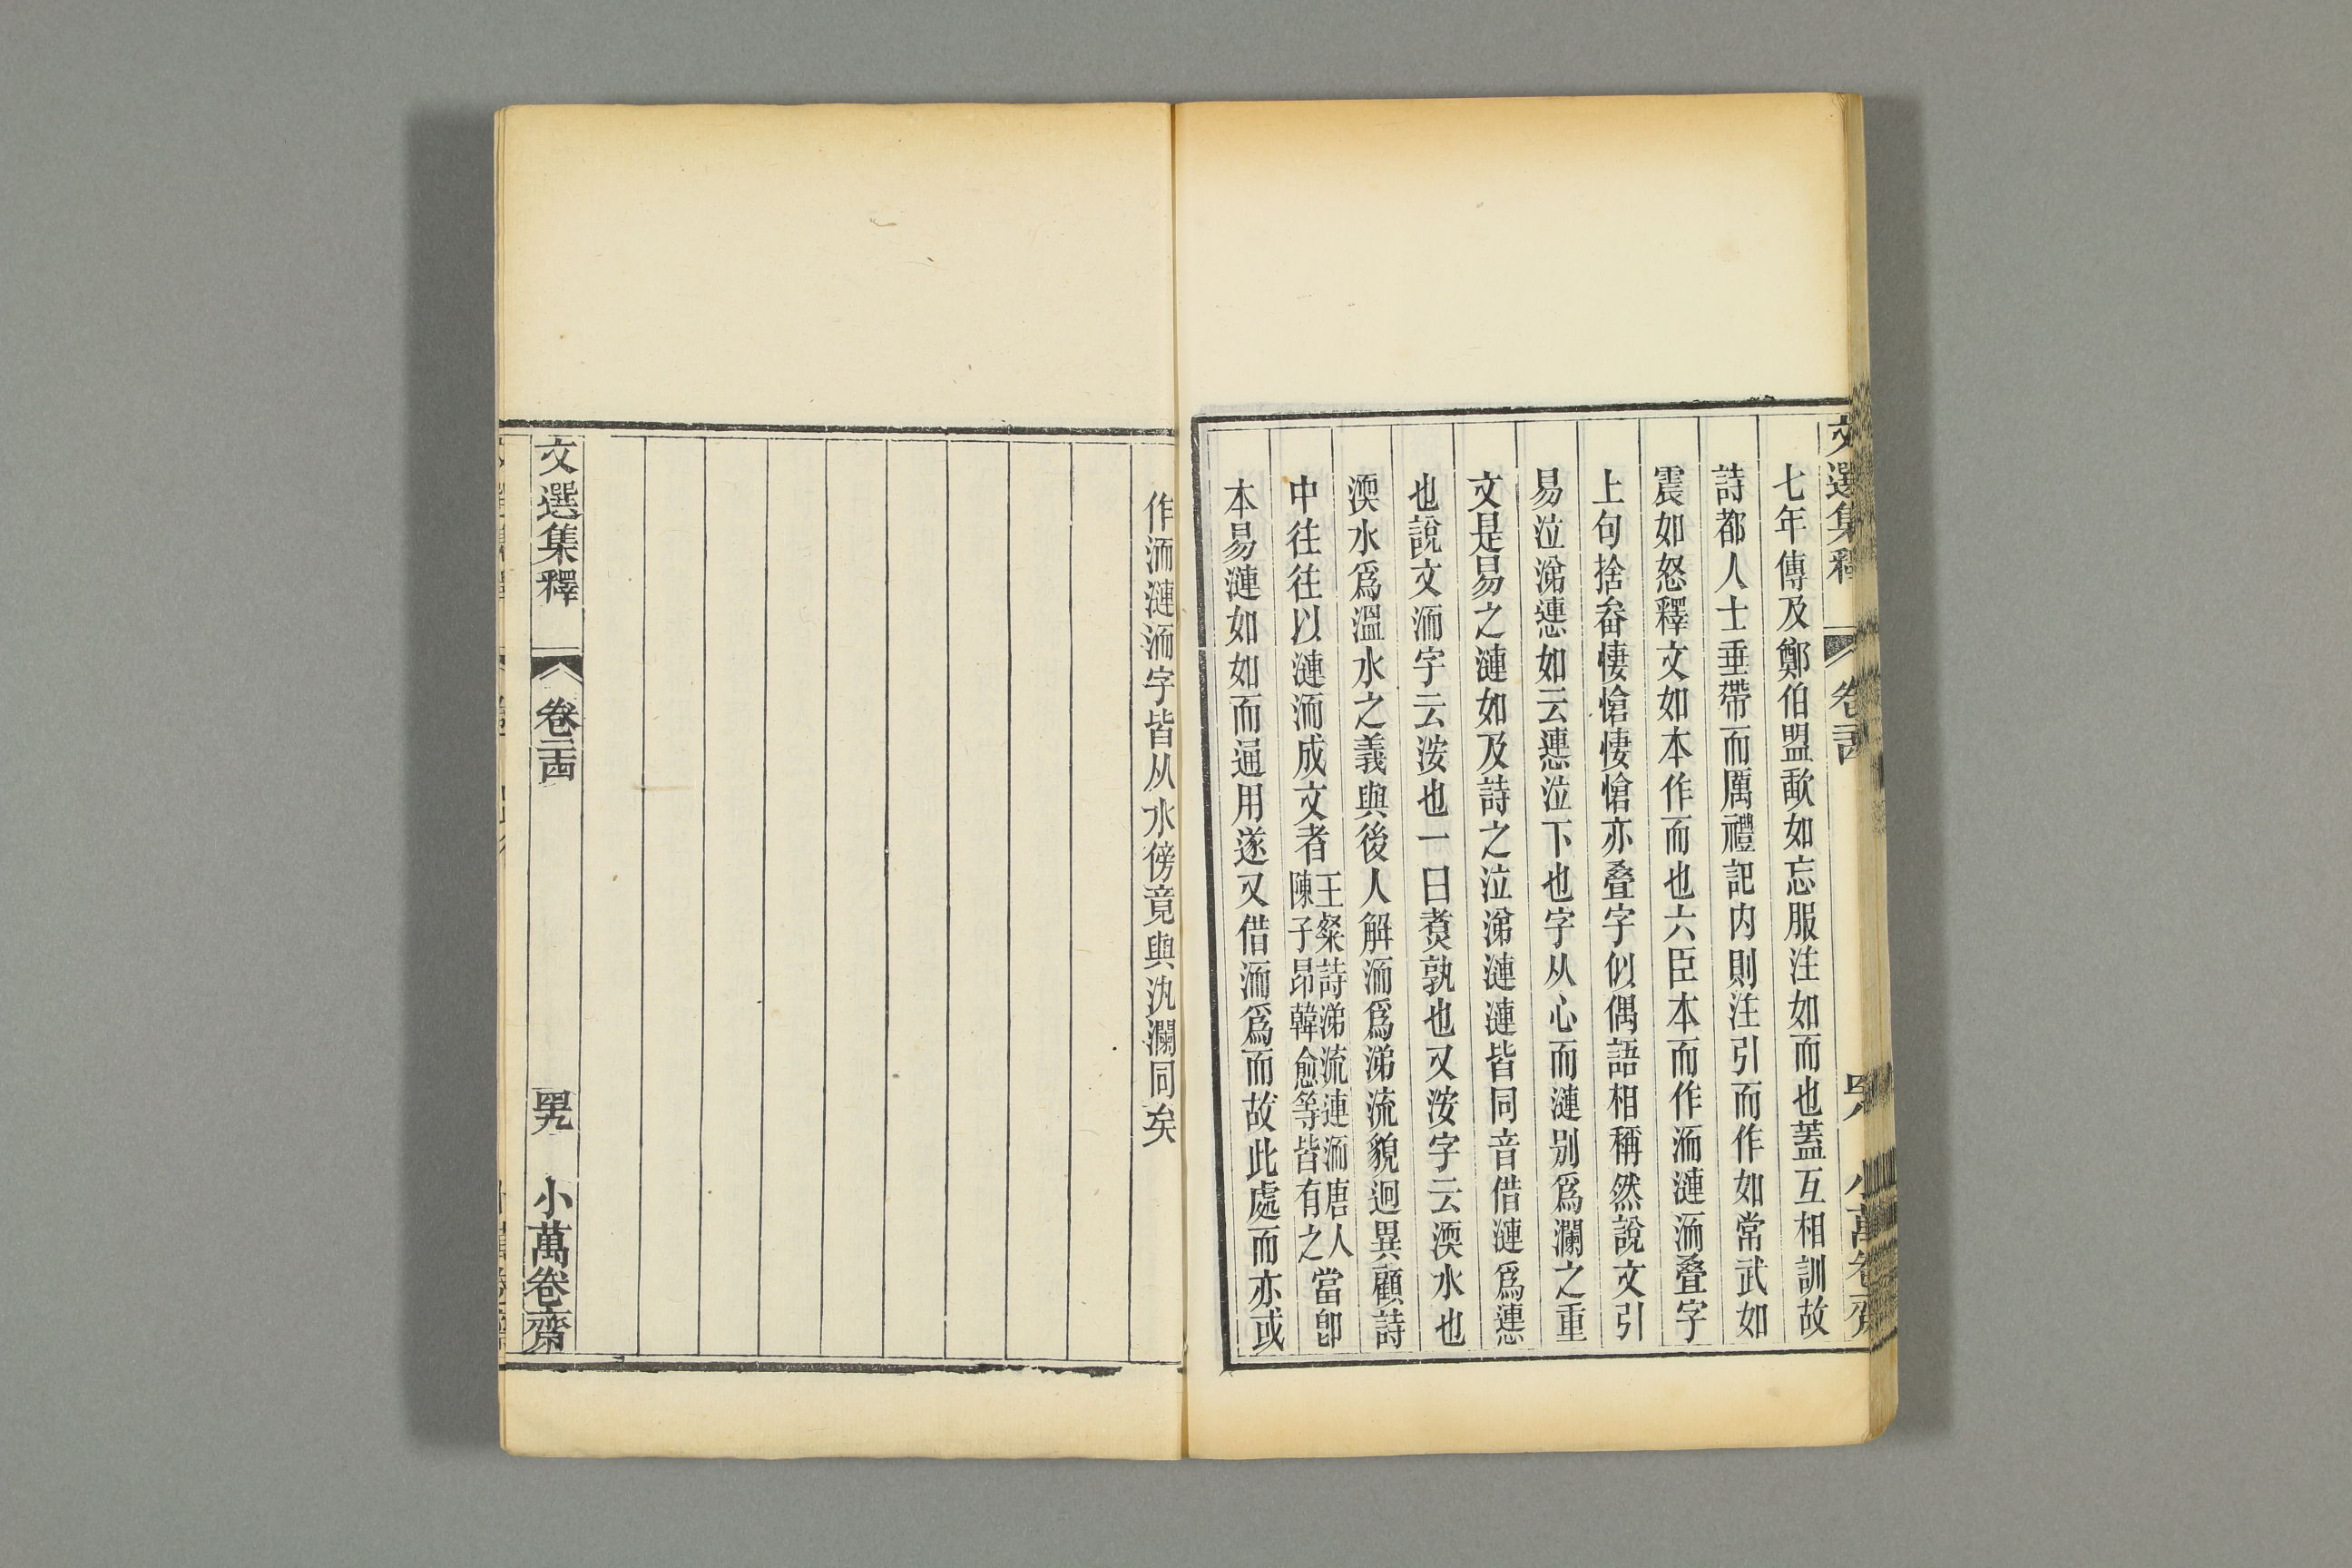 七年傳及鄭伯盟歃如忘服注如而也蓋互相訓故
詩都人士垂帶而厲禮記内則注引而作如常武如
震如怒釋文如本作而也六臣本而作洏漣洏叠字
上句捨畚悽愴悽愴亦叠字似偶語相稱然說文引
易泣涕㦁如云㦁泣下也字从心而漣别爲瀾之重
文是易之漣如及詩之泣涕漣漣皆同音借漣爲㦁
也說文洏字云洝也一曰煑孰也又洝字云渜水也
渜水爲溫水之義與後人解洏爲涕流貌迥異顧詩
中往往以漣洏成文者王粲詩涕流連洏唐人陳子昂韓愈等皆有之當卽
本易漣如如而通用遂又借洏爲而故此處而亦或
作洏漣洏字皆从水傍竟與汍瀾同矣
文選集釋 卷二十四 四九 小萬卷齋